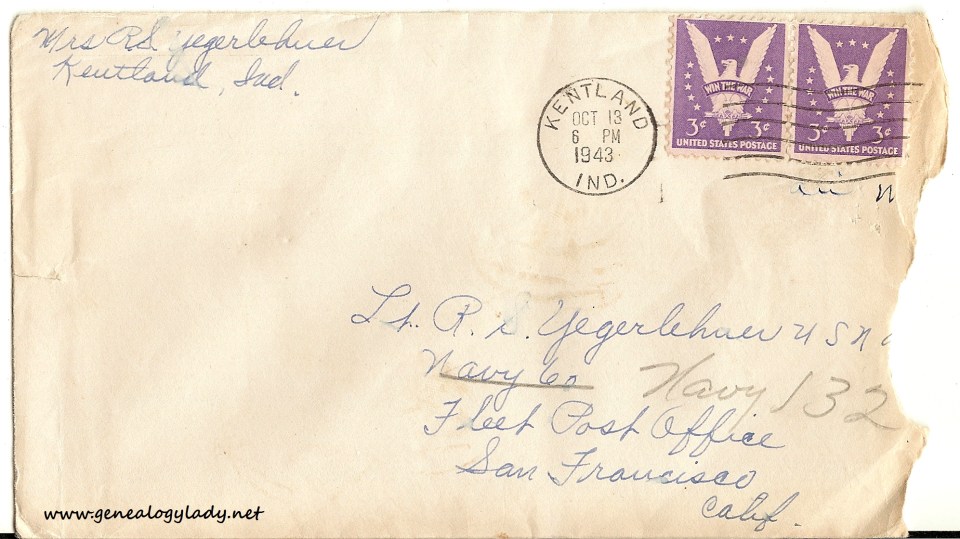 Mrs R S Yegerlehner
Kentland, Ind.
KENTLAND
OCT 13
6 PM
1943
IND.
WIN THE WAR
3¢ 3¢
UNITED STATES POSTAGE
WIN THE WAR
3¢ 3¢
UNITED STATES POSTAGE
Lt. R. S. Yegerlehner U S N
Navy 60 Navy 132
Fleet Post Office
San Francisco
Calif.
www.genealogylady.net